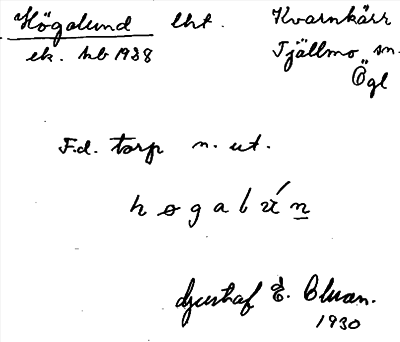 Högalund lht. Kvarnkärr
ek. hb 1938 Tjällmo sn.
Ögl
F.d. torp n. ut.
h ø g a l ú n
Gusthaf E. Cluan.
1930